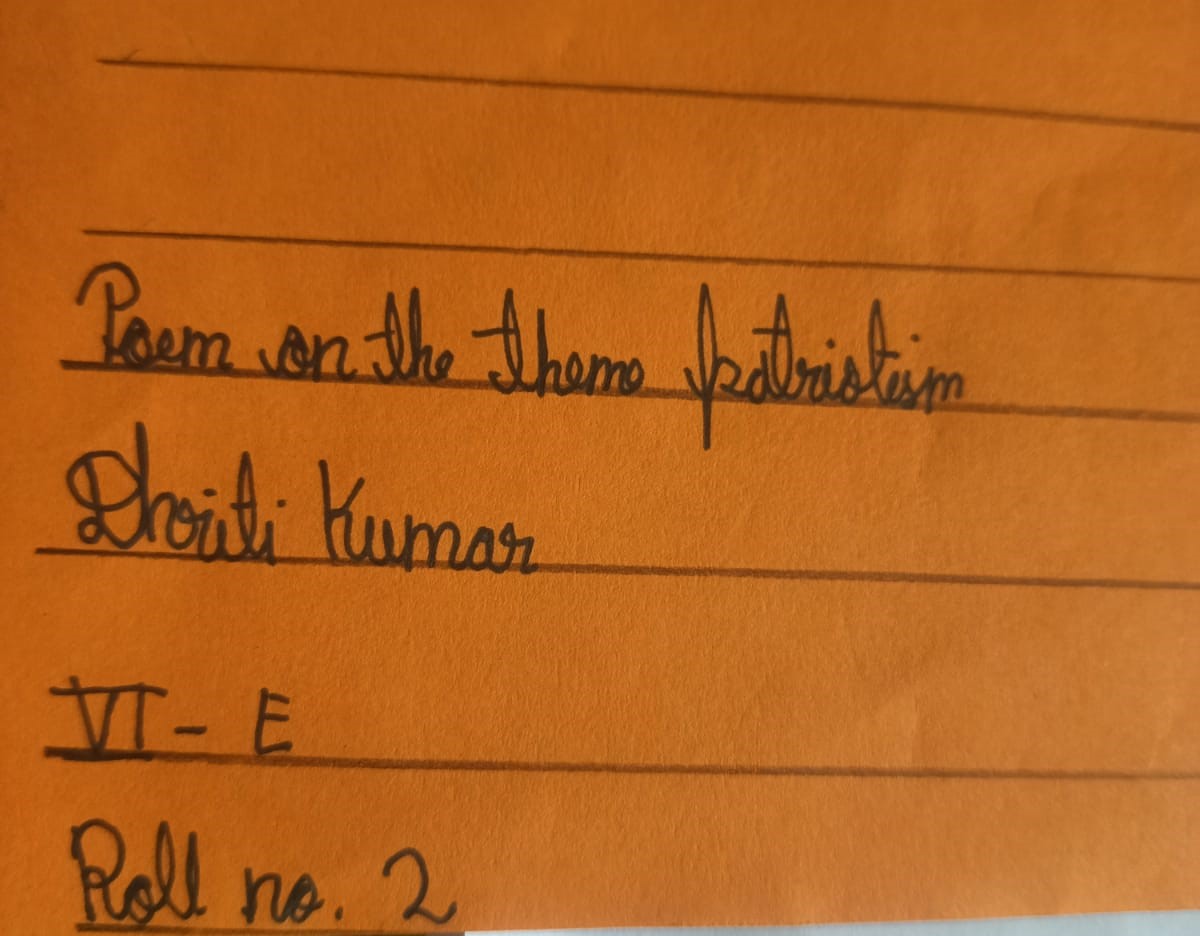 Poem on the theme patriotism
Dhriti Kumar
VI - E
Roll no. 2